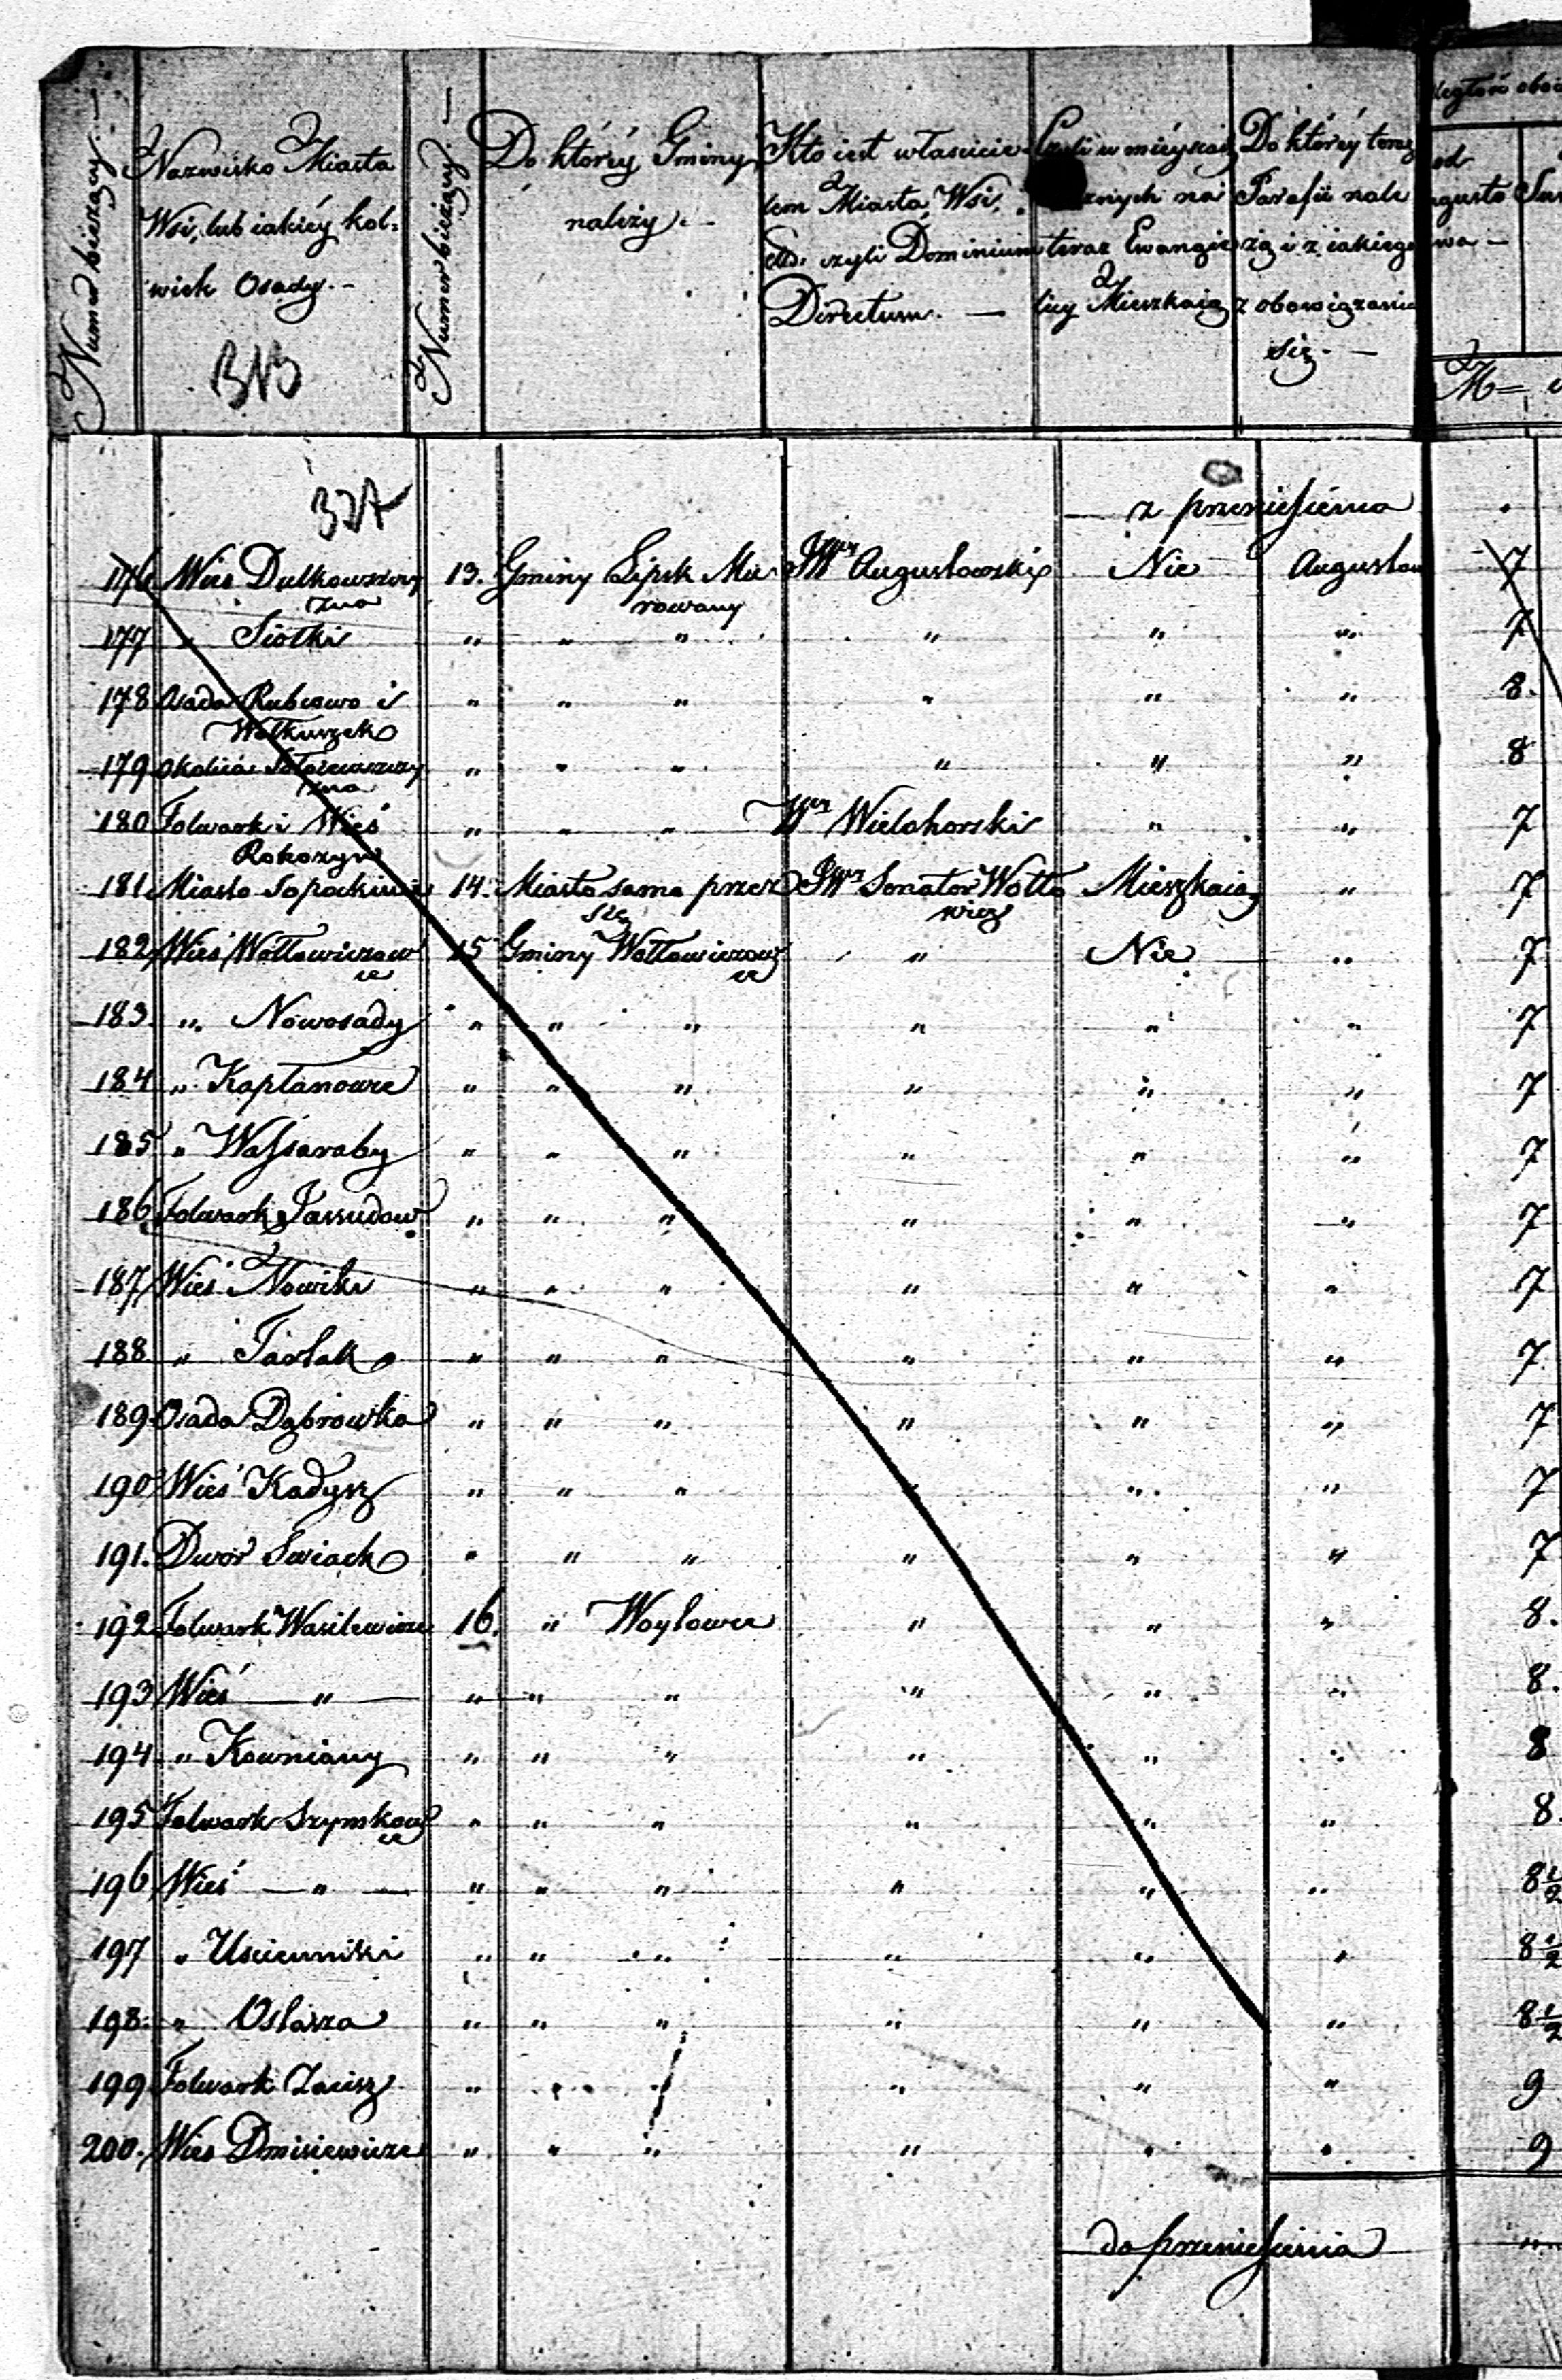 Numer bieżący. —
Nazwisko Miasta
Wsi, lub iakiéy kol-
wiek Osady. -
Numer bieżący. —
Do któréy Gminy
należy. -
Kto iest właścicie-
lem Miasta, Wsi,
czyli Dominium
Directum. —
Czyli w mieysca
znych na
teraz Ewangie
licy Mieszkaią
Do któréy teraz
Parafii nale
żą i z iakiego
z obowiązania
się. —
od
z przeniesienia
176 Wieś Dulkowszczy 13. Gminy Lipsk Mu JWny Augustowski Nie Augustow 7
zna rowany
177 " Siołki " " " " " " 7
178 Osada Rubcowo i " " " " " " 8.
Wołkuszek
179 Okolica " " " " " " 8
zna
180 Folwark i Wieś " " " Wny Wielohorski " " 7
Rokozyn
181. Miasto Sopockinie 14. Miasto samo przez JWny Senator Wołło Mieszkaią " 7
się wicz
182 Wieś Wołłowiczow 15 Gminy Wołłowiczow " Nie " 7
ce ce
183. " Nowosady " " " " " " 7
184 " Kapłanowce " " " " " " 7
185 " Wassaraby " " " " " " 7
186 Folwark Jassudow " " " " " " 7
187 Wieś Nowiki " " " " " " 7
188 " Tartak " " " " " " 7
189. Osada Dąbrowka " " " " " " 7
190 Wieś Kadysz " " " " " " 7
191. Dwor Swiack " " " " " " 7
192 Folwark Wasilewicze 16. " Woytowce " " " 8.
193 Wieś — " — " " " " " " 8.
194 " Kowniany " " " " " " 8
195 Folwark Szymkow " " " " " " 8.
ce
196 Wieś — " — " " " " " " 8½
197 " Uscienniki " " " " " " 8½
198. " Ostasza " " " " " " 8½
199 Folwark Zacisz " " " " " " 9
200. Wieś Dmisiewicze " " " " " " 9
do przeniesienia